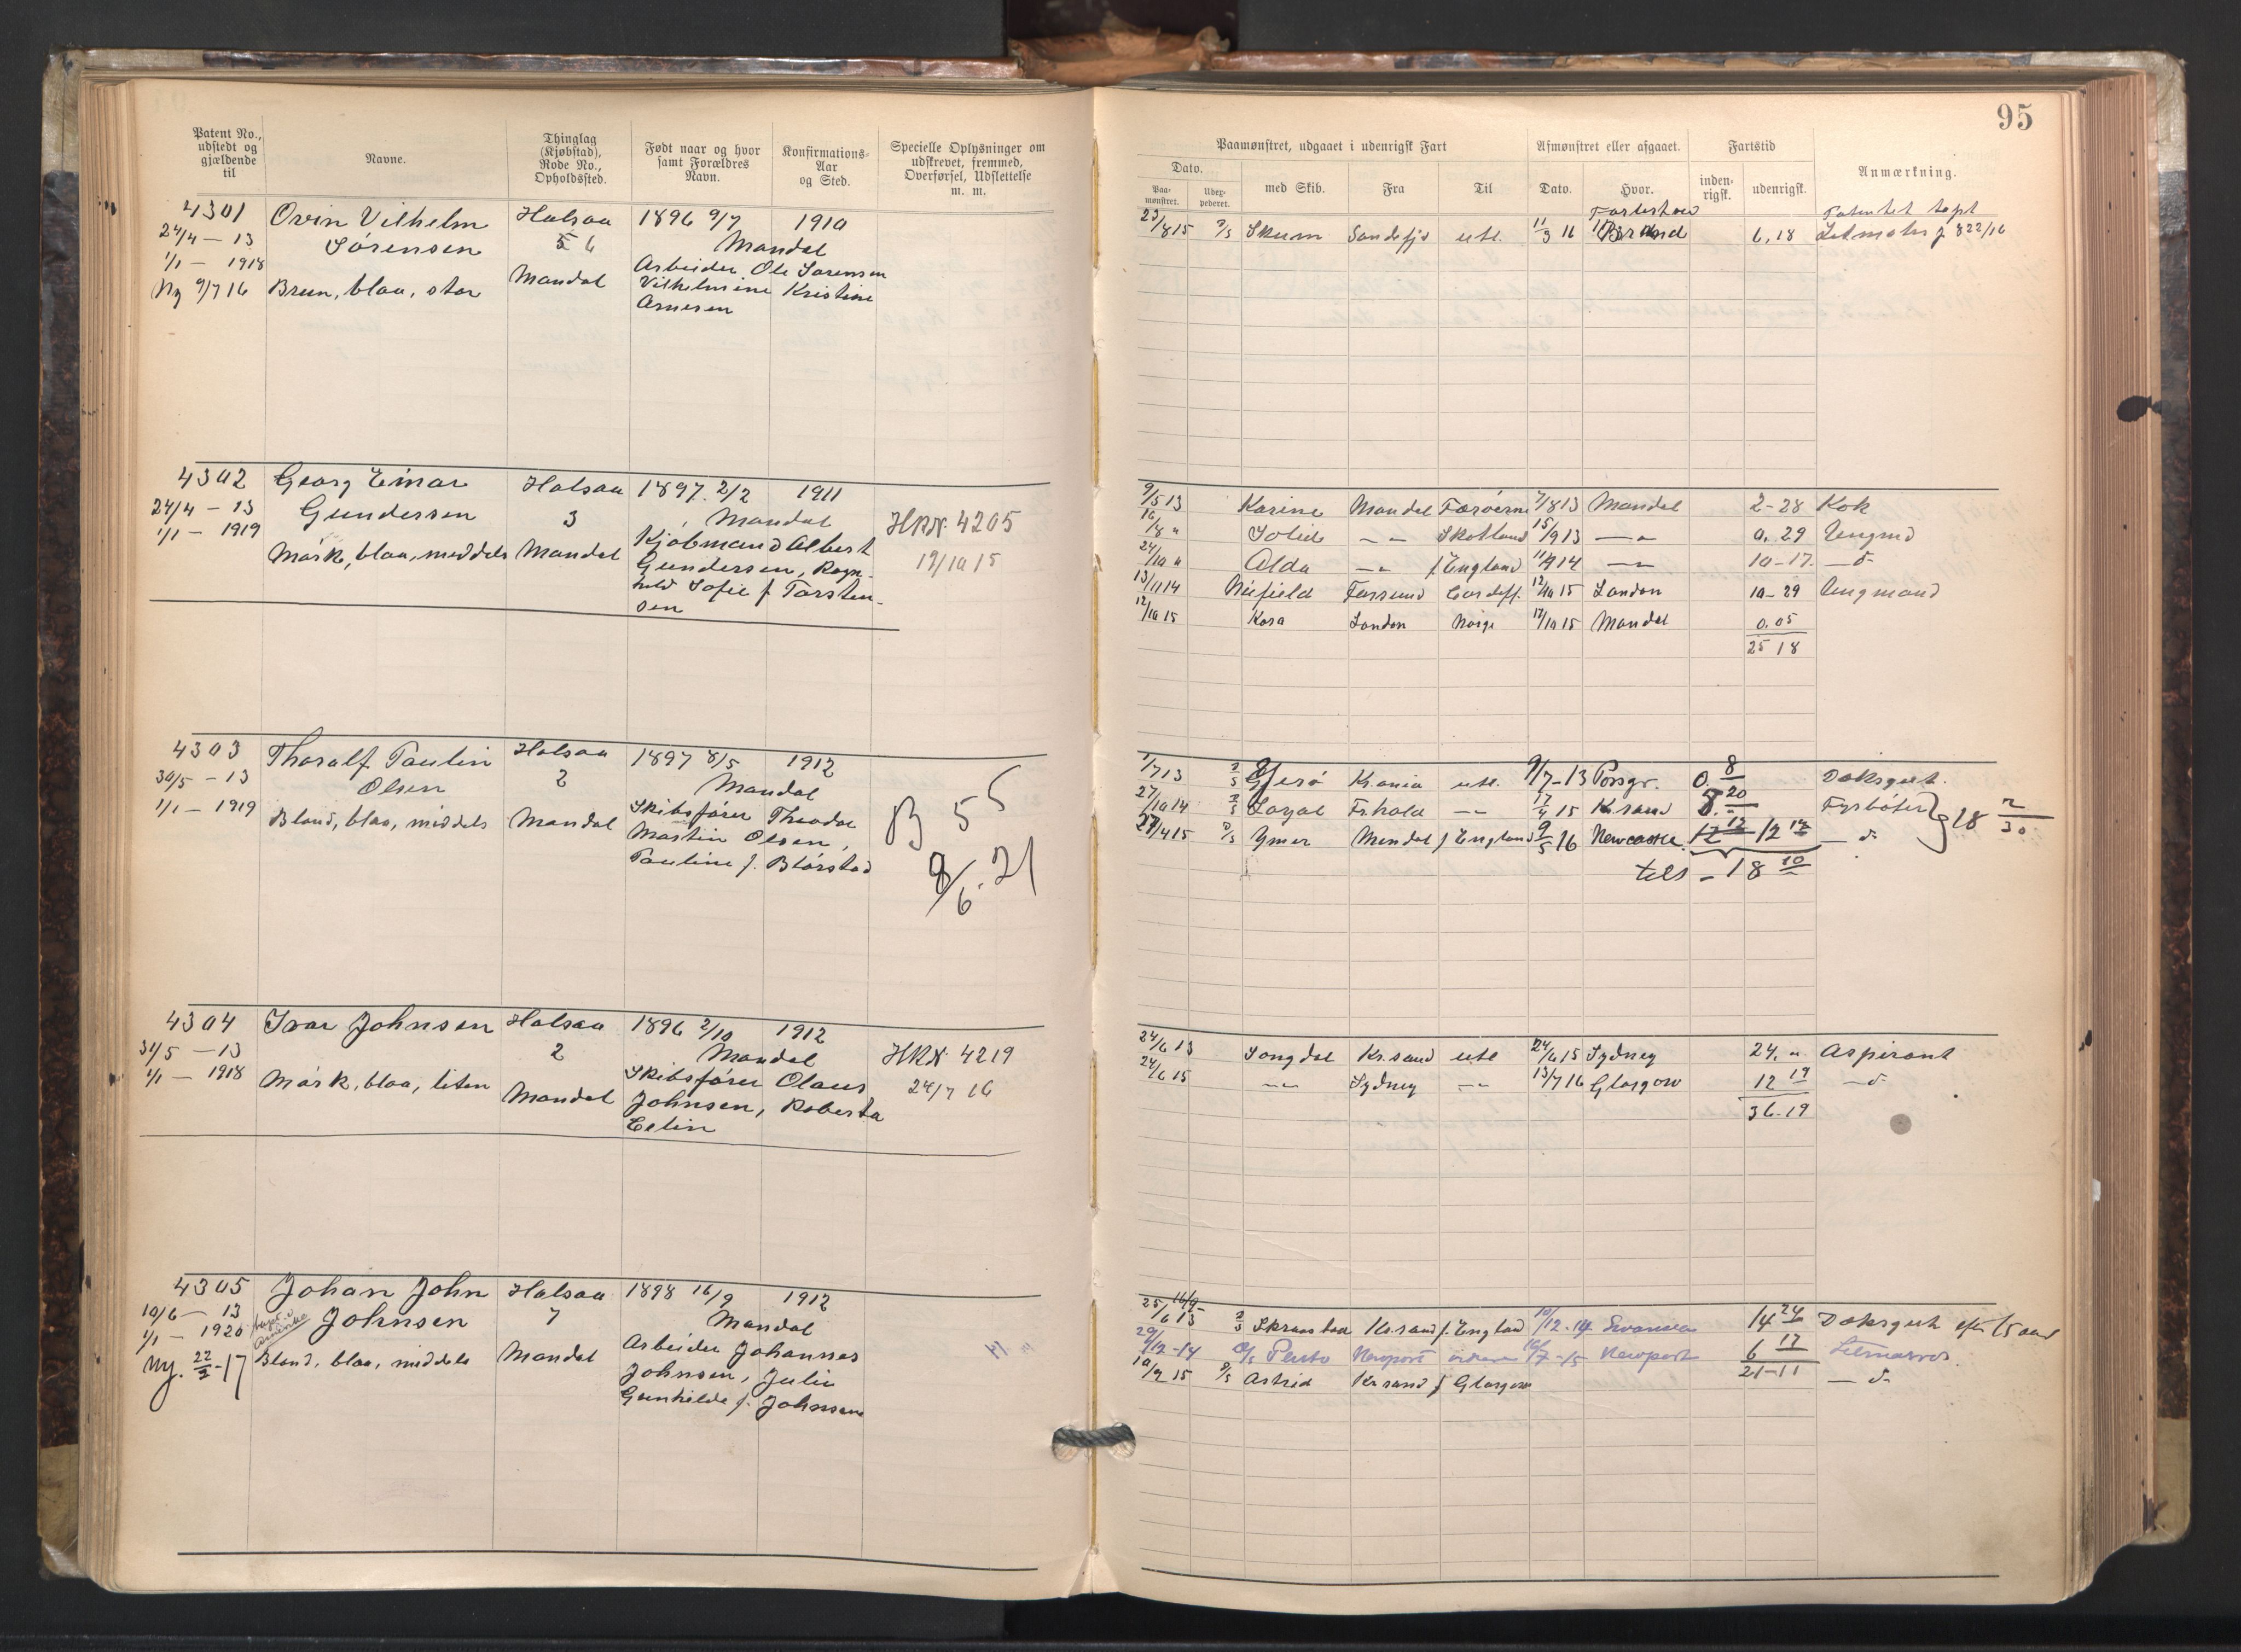 95
Patent No., udstedt og gjældende til
Navne.
Thinglag (Kjøbstad), Rode No., Opholdssted.
Født naar og hvor samt Forældres Navn.
Konfirmations-Aar og Sted.
Specielle Oplysninger om udskrevet, fremmed, Overførsel, Udslettelse m. m.
Paamønstret, udgaaet i udenrigsk Fart
Afmønstret eller afgaaet.
Fartstid
Anmærkning.
Dato.
Paa-mønstret.
Uder-peberet.
med Skib.
Fra
Til
Dato.
Hvor.
inden-rigsk.
udenrigsk.
4301 Ovin Vilhelm Halsaa 1896 9/7 1910
24/4 – 13 Sørensen 5 6 Mandal
1/1 – 1918 Arbeider Ole Sørensen
Ny 9/7 16 Brun, blaa, stor Mandal Vilhelmine Kristine
Arnesen
Patentet tapt
23/8 15 D/S Skum Sandefjd utl. 11/3 16 6,18
4302 Georg Einar Halsaa 1897 2/2 1911
24/4 – 13 Gundersen 3 Mandal HRN. 4205
1/1 – 1919 Kjøbmand Albert
Mørk, blaa, middels Mandal Gundersen, Ragn- 19/10 15
hild Sofie f Torsten-
sen
9/5 13 Karine Mandal Færøerne 7/8 13 Mandal 2-28 Kok
16/8 " Solid — Skotland 15/9 13 — 0.29 Ungmd
24/10 " Alda — f England 11/9 14 — 10-17. — d-
13/11 14 Farsund Cardiff. 12/10 15 London 10-29 Ungmand
12/10 15 Kora London Norge 17/10 15 Mandal 0.05
25 18
4303 Thoralf Paulin Halsaa 1897 8/5 1912
30/5 – 13 Olsen 2 Mandal
1/1 – 1919 Blond, blaa, middels Mandal Skibsfører Theodor
Martin Olsen,
Pauline f. Blørstad
B 55
9/6. 21
1/7 13 D/S Gjerø Kr.ania utl. 9/7-13 Porsgr. 0. 8 Dæksgut.
27/10 14 D/S Loyal Fr.hald — 17/4 15 Kr.sand 5. 20 Fyrbøter
27/4 15 D/S Ymer Mandal f England 9/5 16 Newcastle. 12 12 12 12 — d- 18 2/30
tils – 18 10
4304 Ivar Johnsen Halsaa 1896 2/10 1912
31/5 – 13 2 Mandal HRN. 4219
1/1 – 1918 Mørk, blaa, liten Mandal Skibsfører Olaus 24/7 16
Johnsen, Roberta
Eelin
24/6 13 Songdal Kr.sand utl 24/6 15 Sydney 24. " Aspirant
24/6 15 — Sydney — 13/7 16 Glasgow 12 19 — d-
36-19
4305 Johan John Halsaa 1898 16/9 1912
10/6 – 13 Johnsen 7 Mandal
1/1 – 1920 Arbeider Johannes
Ny. 22/2-17 Blond, blaa, middels Mandal Johnsen, Julie
Gunhilde f. Johnsen
25/6 13 16/9 D/S Skramstad Kr.sand f. England 10/12-14 Swansea 14 24 Dæksgut efter 15 aar
29/12-14 D/S Pluto Newport 10/7-15 Newport 6 17 Letmatros.
10/9 15 D/S Astrid Kr.sand f Glasgow 21-11 — d-